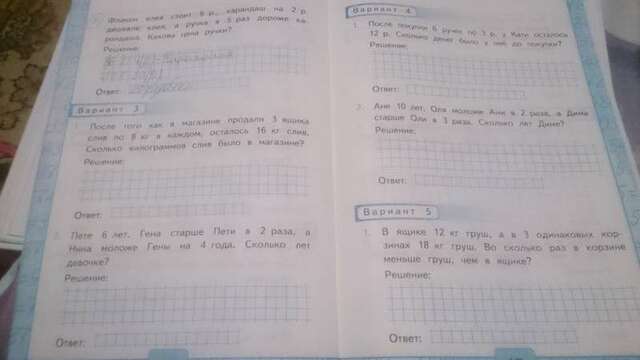 Флакон клея стоит 6 р., карандаш на 2 р.
дешевле клея, а ручка в 3 раз дороже ка-
рандаша. Какова цена ручки?
Решение:
Ответ:
Вариант 3
После того как в магазине продали 3 ящика
слив по 8 кг в каждом, осталось 16 кг слив.
Сколько килограммов слив было в магазине?
Решение:
Ответ:
2. Пете 6 лет. Гена старше Пети в 2 раза, а
Нина моложе Гены на 4 года. Сколько лет
девочке?
Решение:
Ответ:
Вариант 4
1. После покупки 6 ручек по 3 р. у Кати осталось
12 р. Сколько денег было у неё до покупки?
Решение:
Ответ:
2. Ане 10 лет. Оля моложе Ани в 2 раза, а Дима
старше Оли в 3 раза. Сколько лет Диме?
Решение:
Ответ:
Вариант 5
1. В ящике 12 кг груш, а в 3 одинаковых кор-
зинах 18 кг груш. Во сколько раз в корзине
меньше груш, чем в ящике?
Решение:
Ответ: